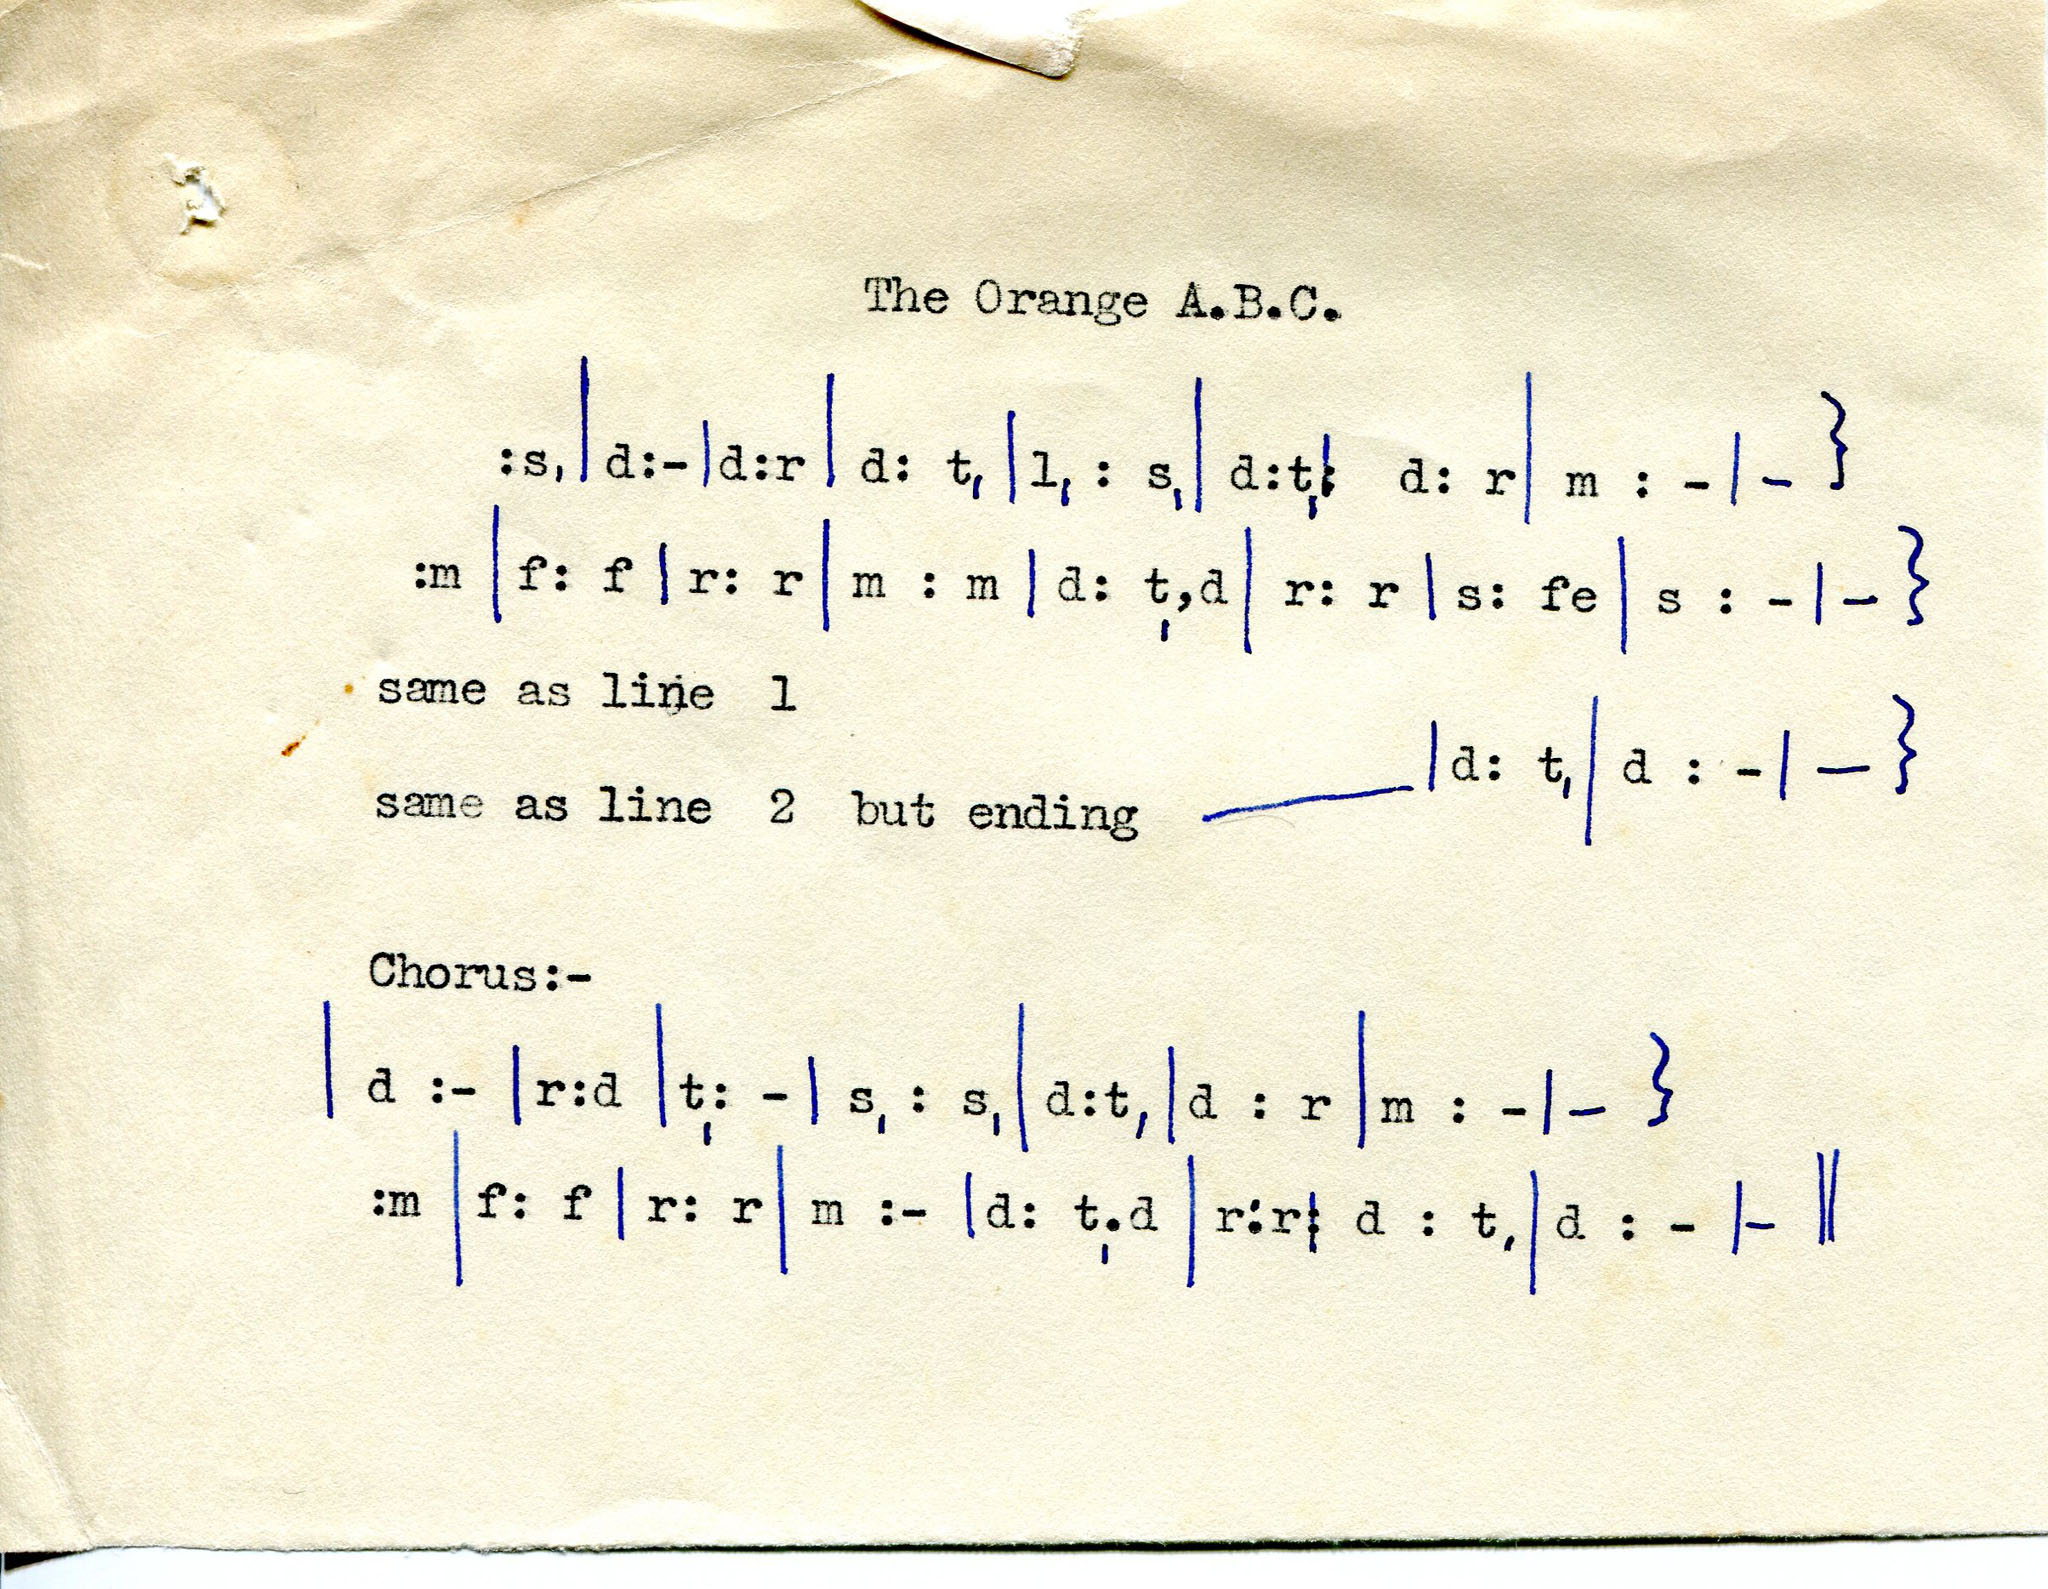 The Orange A.B.C.
:s,|d:-|d:r|d: t,|l, : s,|d:t,| d: r|m : -|- }
:m|f: f|r: r|m : m|d: t,,d|r: r|s: fe|s : -|-}
same as line 1
same as line 2 but ending |d: t,|d : -|-}
Chorus:-
|d :-|r:d|t,: -|s, : s,|d:t,|d : r|m : -|- }
:m|f: f|r: r|m :-|d: t,.d|r:r| d : t,|d : -|-||